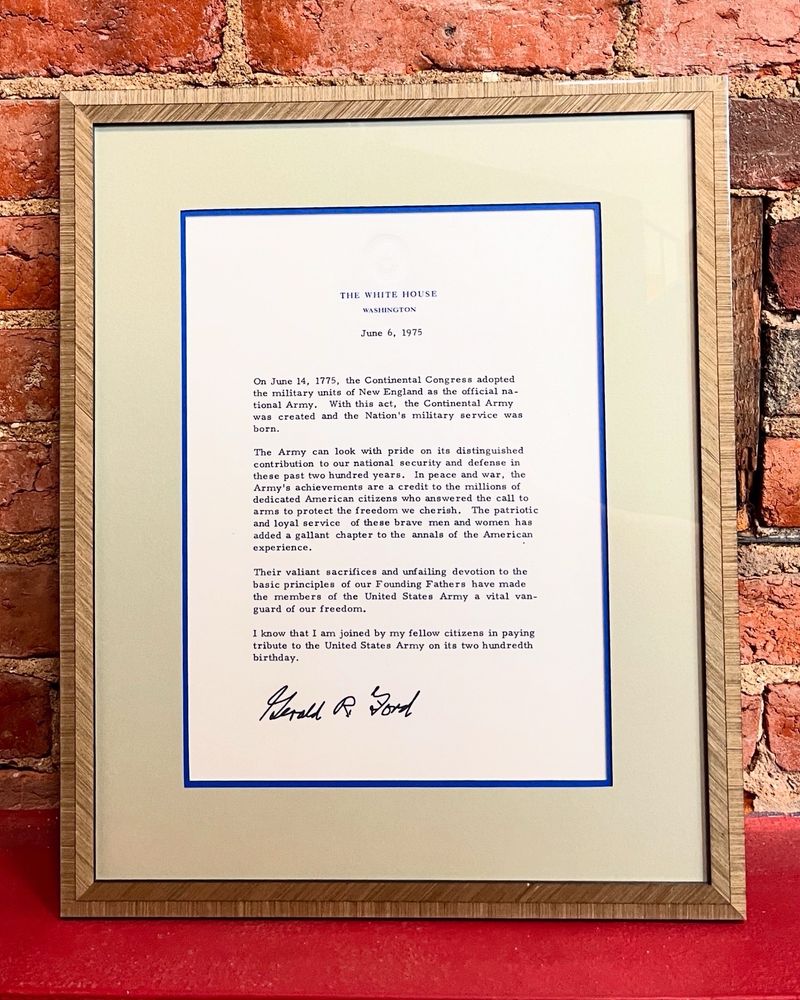 THE WHITE HOUSE
WASHINGTON
June 6, 1975
On June 14, 1775, the Continental Congress adopted
the military units of New England as the official na-
tional Army. With this act, the Continental Army
was created and the Nation's military service was
born.
The Army can look with pride on its distinguished
contribution to our national security and defense in
these past two hundred years. In peace and war, the
Army's achievements are a credit to the millions of
dedicated American citizens who answered the call to
arms to protect the freedom we cherish. The patriotic
and loyal service of these brave men and women has
added a gallant chapter to the annals of the American
experience.
Their valiant sacrifices and unfailing devotion to the
basic principles of our Founding Fathers have made
the members of the United States Army a vital van-
guard of our freedom.
I know that I am joined by my fellow citizens in paying
tribute to the United States Army on its two hundredth
birthday.
Gerald R. Ford